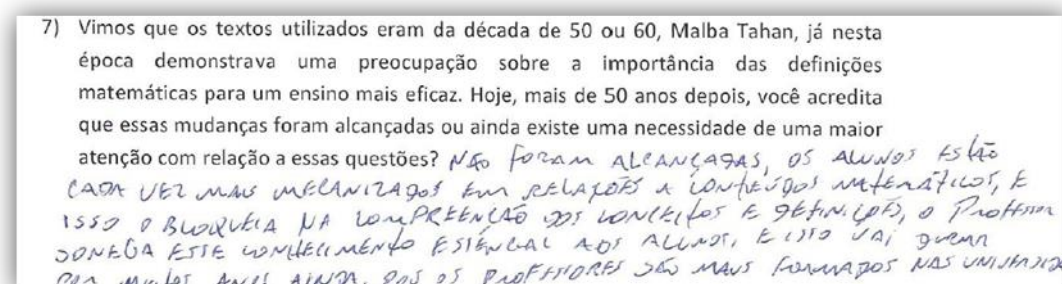 7) Vimos que os textos utilizados eram da década de 50 ou 60, Malba Tahan, já nesta
época demonstrava uma preocupação sobre a importância das definições
matemáticas para um ensino mais eficaz. Hoje, mais de 50 anos depois, você acredita
que essas mudanças foram alcançadas ou ainda existe uma necessidade de uma maior
atenção com relação a essas questões? NÃO FORAM ALCANÇADAS, OS ALUNOS ESTÃO
CADA VEZ MAIS MECANIZADOS EM RELAÇÕES A CONTEÚDOS MATEMÁTICOS, E
ISSO O BLOQUEIA NA COMPREENÇÃO DOS CONCEITOS E DEFINIÇÕES, O PROFESSOR
SONEGA ESSE CONHECIMENTO ESSENCIAL AOS ALUNOS, E ISSO VAI DURAR
POR MUITOS ANOS AINDA, POIS OS PROFESSORES SÃO MAUS FORMADOS NAS